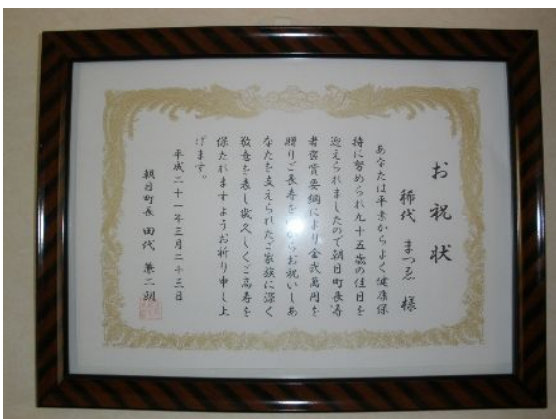 お祝状
稀代 まつゑ 様
あなたは平素からよく健康保
持に努められ九十五歳の佳日を
迎えられましたので朝日町長寿
者褒賞要綱により金弐萬円を
贈りご長寿を心からお祝いしあ
なたを支えられたご家族に深く
敬意を表し幾久しくご高寿を
保たれますようお祈り申し上
げます。
平成二十一年三月二十三日
朝日町長 田代 兼二朗